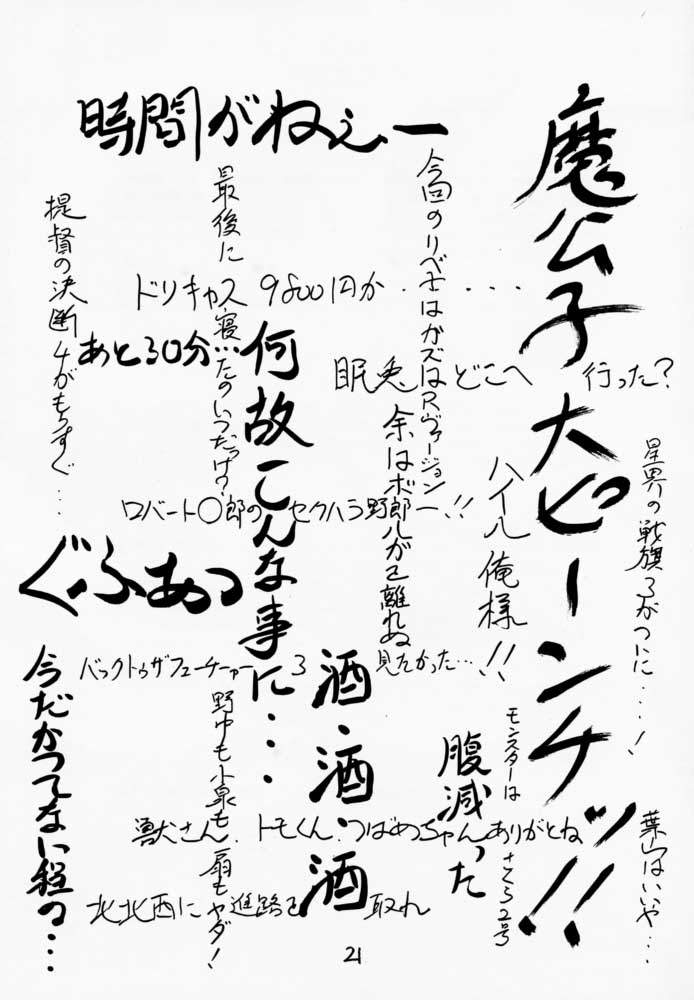 魔公子大ピーンチッ!!
時間がねぇー
今回のリベ士はガズはRヴァージョンー!!
最後に寝たのいつだっけの?
提督の決断4がもうすぐ…
ドリキャス 9800円か.....
あと30分…
何故こんな事に・・・
眠兎 どこへ 行った?
余はボ郎ルがて離れぬ
ハイル俺様!!
星界の戦旗3がついに・・・・!
ロバート〇郎の セクハラ野郎
ぐふぁっ
バックトゥザフューチャー 3 見たかった…
酒・酒・酒
今だかつてない程の…
野中も小泉も扇もヤダ!
腹減った
モンスターは さくら2号
葉山はいいや…
獣さん、トモくん、つばめちゃんありがとね
北北西に進路を取れ
21